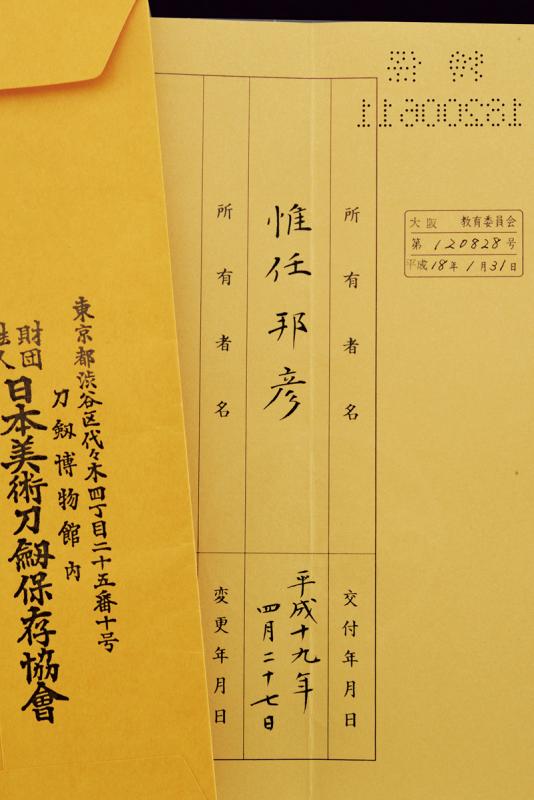 大阪 教育委員会
第120828号
平成18年1月31日
所有者名
交付年月日
惟任邦彦
平成十九年
四月二十七日
所有者名
変更年月日
東京都渋谷区代々木四丁目二十五番十号
刀劔博物館内
財団
日本美術刀劔保存協會